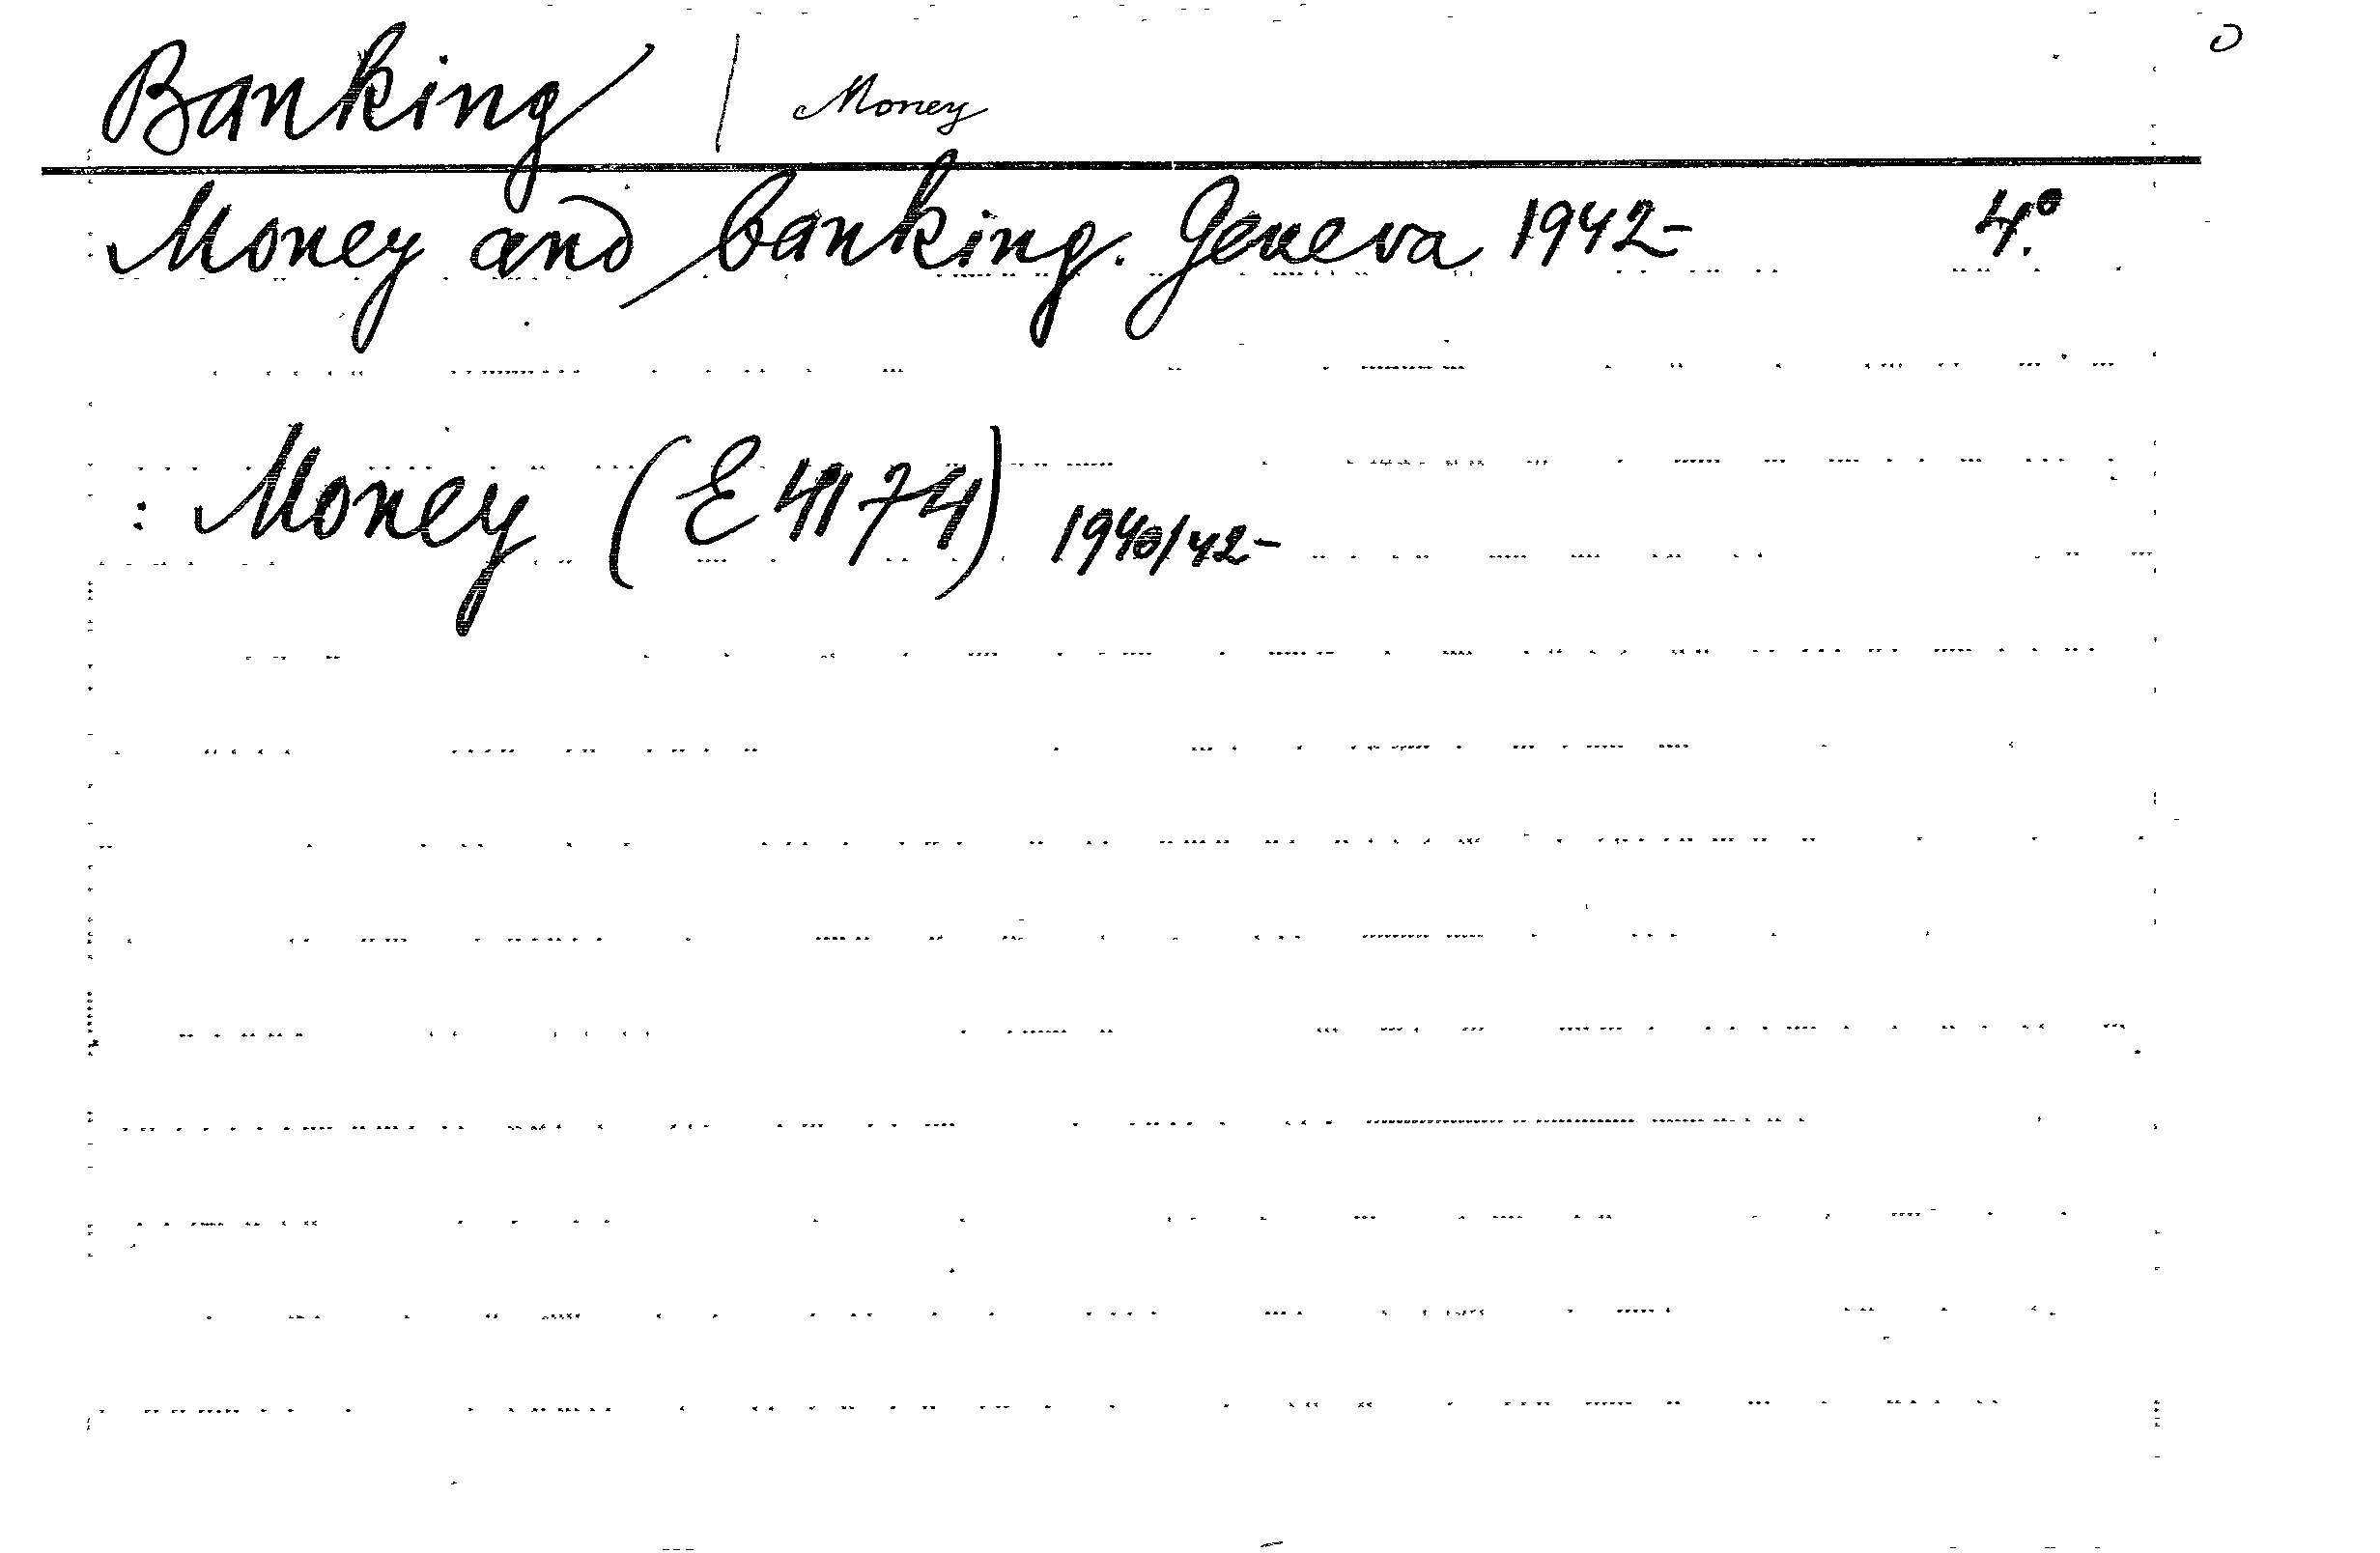 Banking | Money
Money and banking. Geneva 1942- 4.º
: Money (E 4174) 1940/42-